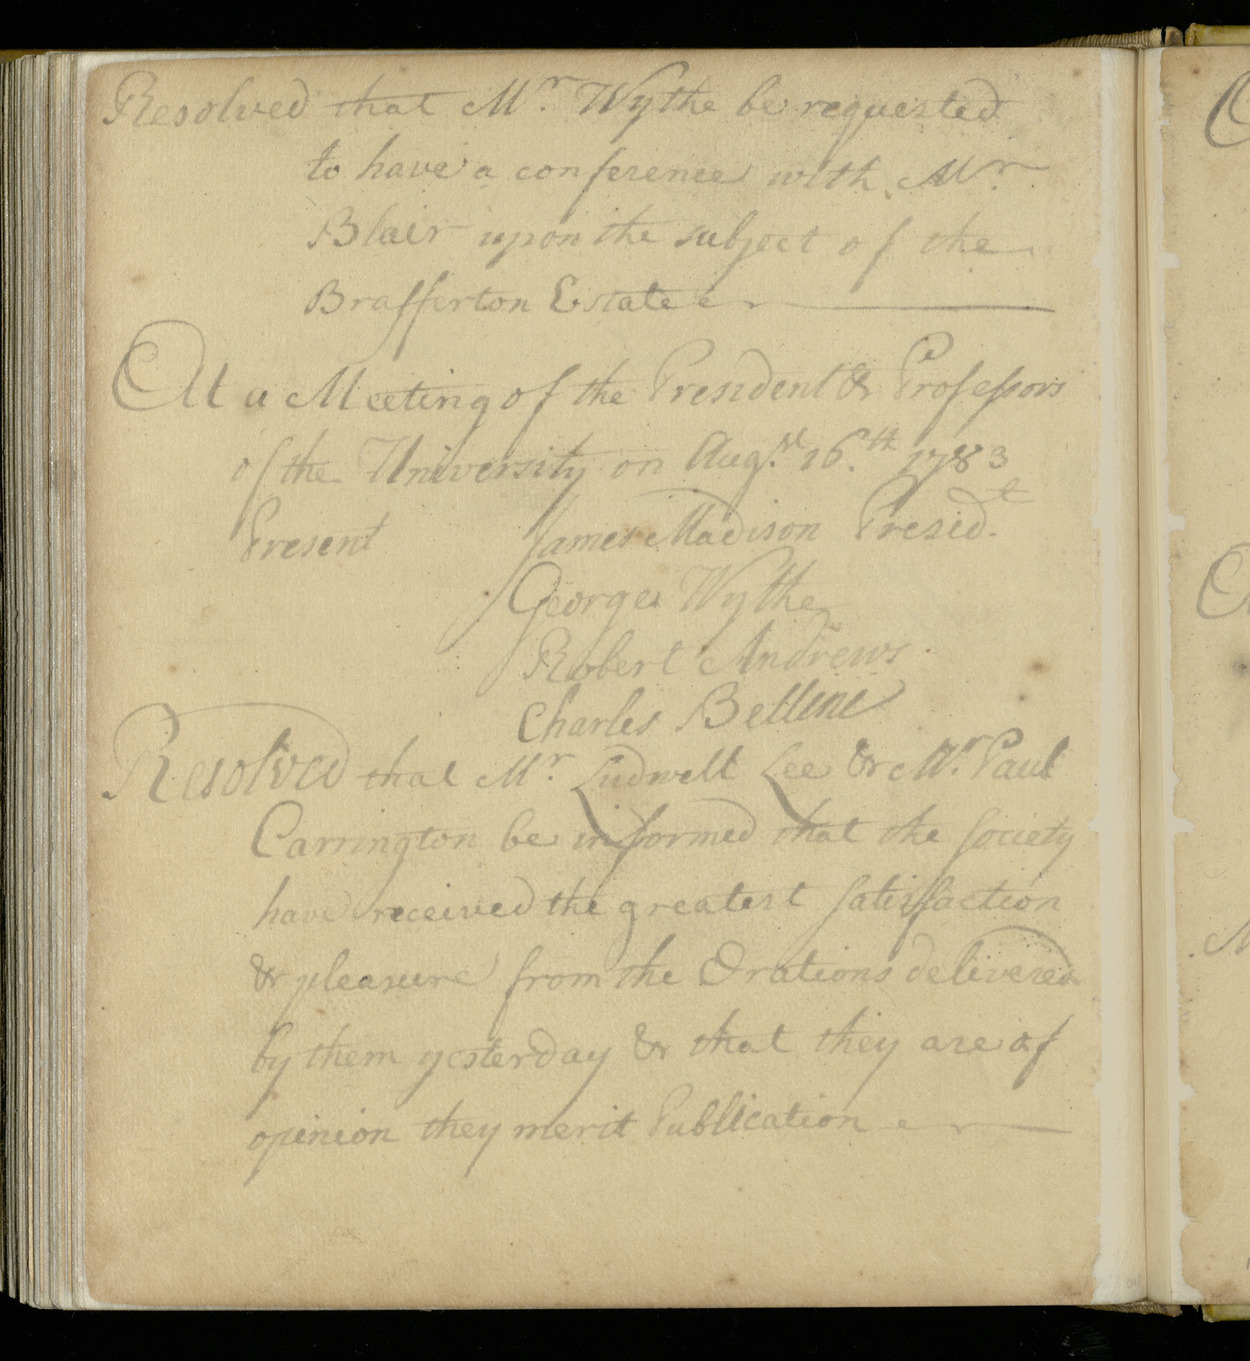 Resolved that Mr. Wythe be requested
to have a conference with Mr.
Blair upon the subject of the
Brafferton Estate
At a Meeting of the President & Professors
of the University on Augst. 16.th 1783
Present James Madison Presidt.
George Wythe
Robert Andrews.
Charles Bellini
Resolved that Mr. Ludwell Lee & Mr. Paul
Carrington be informed that the Society
have received the greatest satisfaction
& pleasure from the Orations delivered
by them yesterday & that they are of
opinion they merit Publication